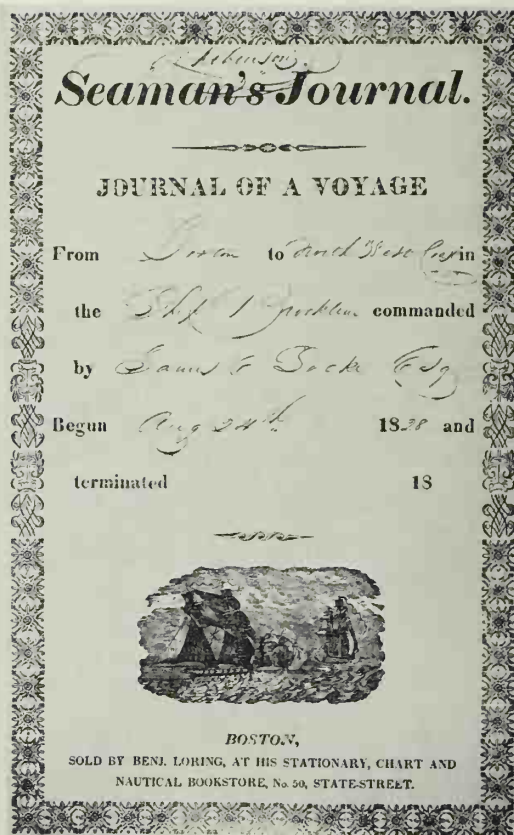 Seaman's Journal.
JOURNAL OF A VOYAGE
From to North West in
the Ship commanded
by James Esq
Begun Aug 24th 1838 and
terminated 18
BOSTON,
SOLD BY BENJ. LORING, AT HIS STATIONARY, CHART AND
NAUTICAL BOOKSTORE, No. 50, STATE-STREET.